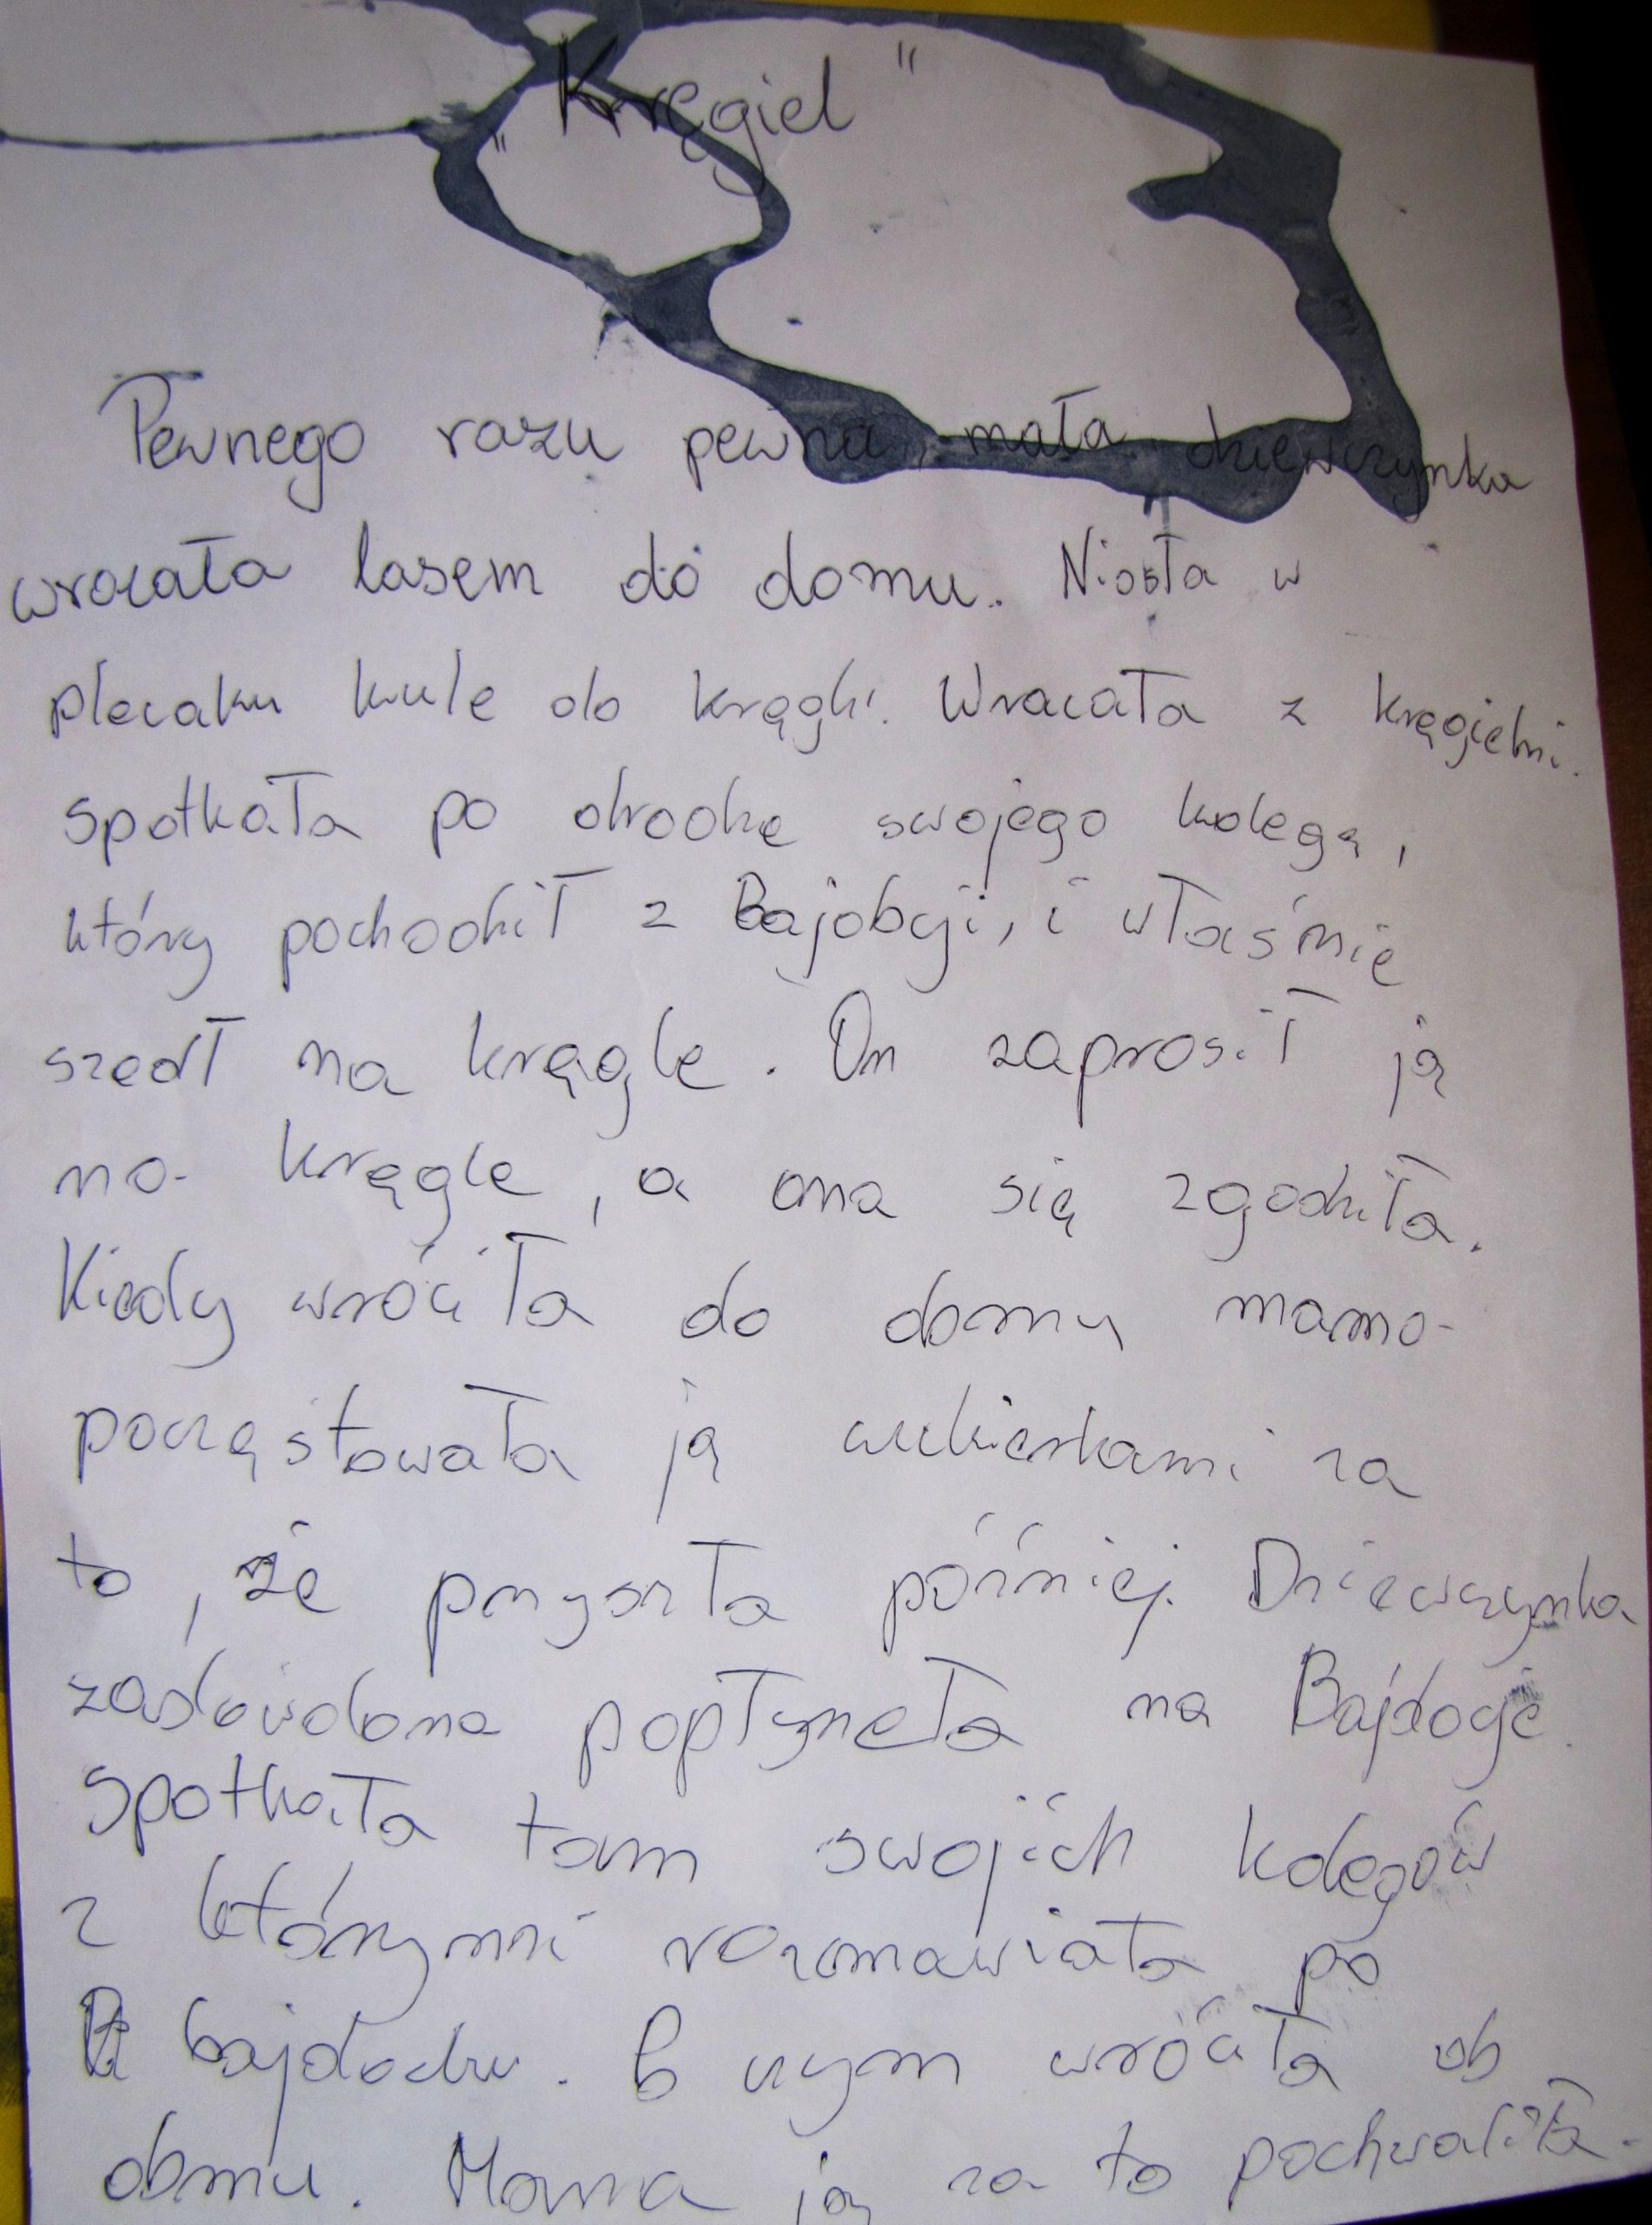 „Kręgiel"
Pewnego razu pewna, mała dziewczynka
wracała lasem do domu. Niosła w
plecaku kule do kręgli. Wracała z kręgielni.
spotkała po drodze swojego kolegę,
który pochodził z i właśnie
szedł na kręgle. On zaprosił ją
na kręgle, a ona się zgodziła.
Kiedy wróciła do domu mama
poczęstowała ją cukierkami za
to, że przyszła później. Dziewczynka
zadowolona popłyneła na
Spotkała tam swojich kolegów
z którymi rozmawiała po
bajdocku. Po czym wróciła do
domu. Mama ją za to pochwaliła.